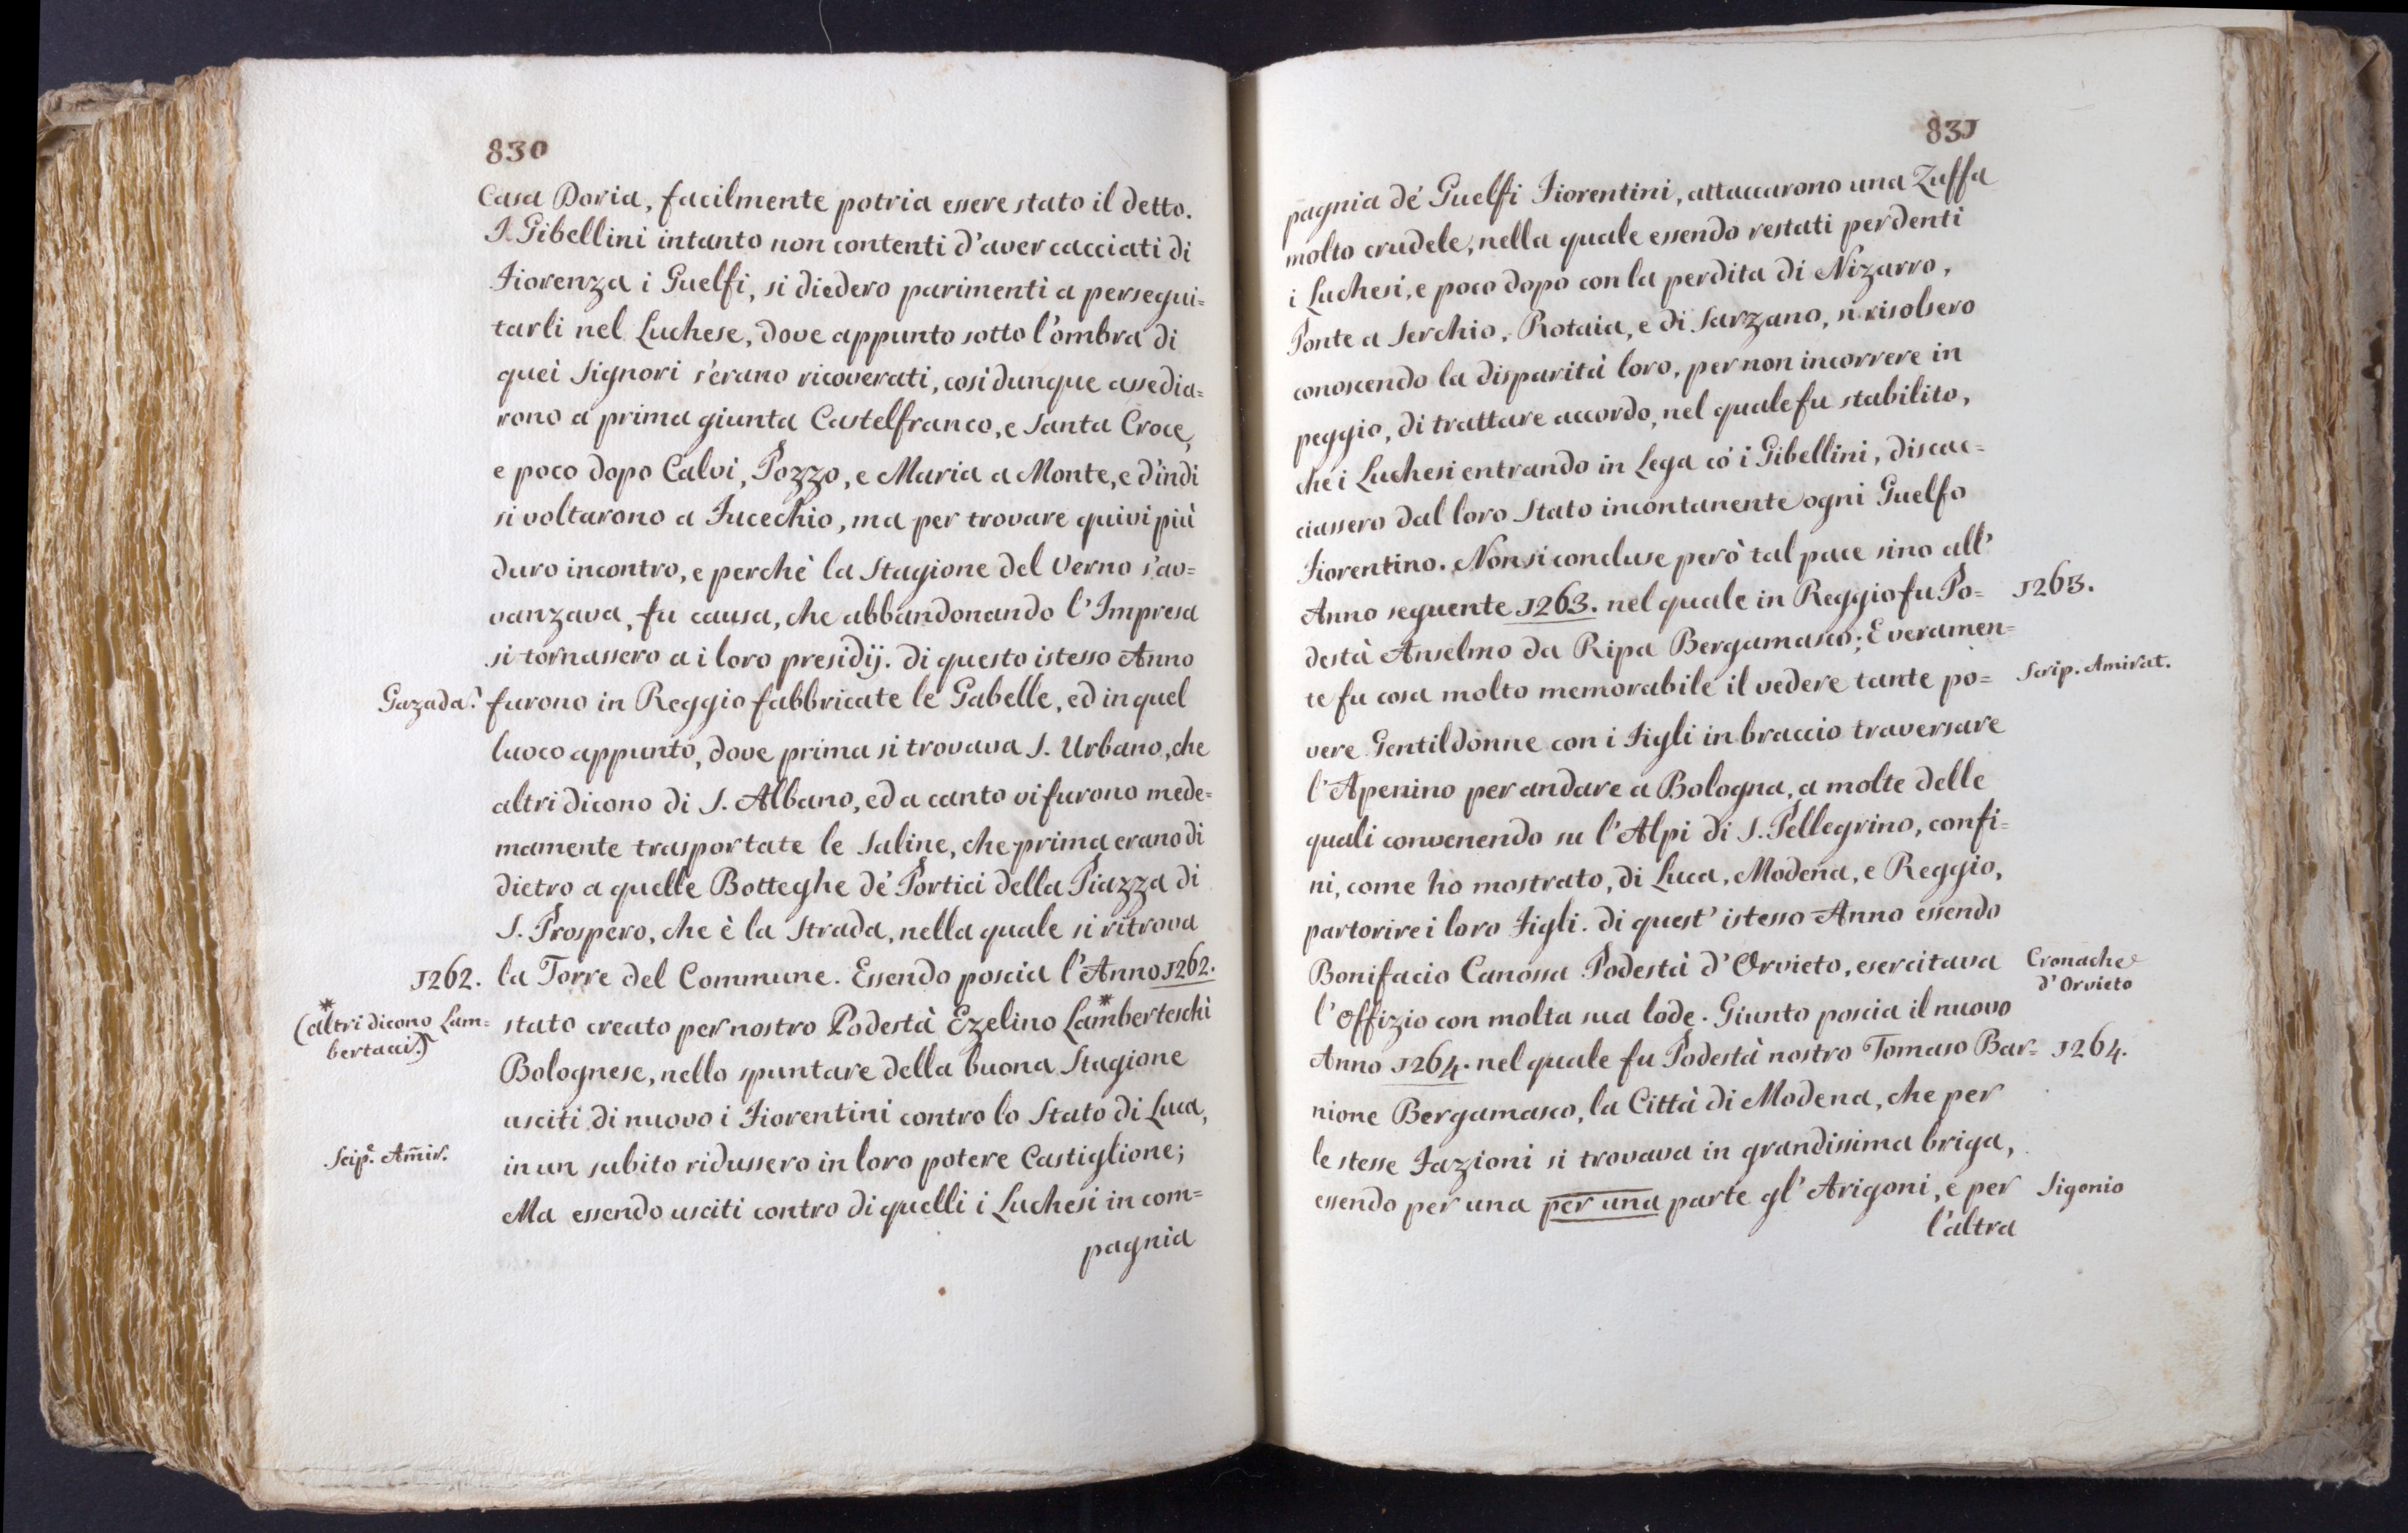 830
Casa Doria, facilmente potria essere stato il detto.
I Gibellini intanto non contenti d'aver cacciati di
Fiorenza i Guelfi, si diedero parimenti a persegui=
tarli nel Luchese, dove appunto sotto l'ombra di
quei Signori s'erano ricoverati, così dunque assedia=
rono a prima giunta Castelfranco, e Santa Croce,
e poco dopo Calvi, Pozzo, e Maria a Monte, e d'indi
si voltarono a Fucechio, ma per trovare quivi più
duro incontro, e perchè la Stagione del Verno s'av=
vanzava, fu causa, che abbandonando l'Impresa
si tornassero a i loro presidij. di questo istesso Anno
Gazada. furono in Reggio fabbricate le Gabelle, ed in quel
luoco appunto, dove prima si trovava S. Urbano, che
altri dicono di S. Albano, ed a canto vi furono mede=
mamente trasportate le Saline, che prima erano di
dietro a quelle Botteghe dé Portici della Piazza di
S. Prospero, che è la Strada, nella quale si ritrova
1262. la Torre del Commune. Essendo poscia l'Anno 1262.
* (altri dicono Lam= stato creato per nostro Podestà Ezelino Lamberteschi *
bertacci.) Bolognese, nello spuntare della buona Stagione
usciti di nuovo i Fiorentini contro lo Stato di Luca,
Scip.e Am̃ir. in un subito ridussero in loro potere Castiglione;
Ma essendo usciti contro di quelli i Luchesi in com=
pagnia
831
pagnia dé Guelfi Fiorentini, attaccarono una Zuffa
molto crudele, nella quale essendo restati perdenti
i Luchesi, e poco dopo con la perdita di Nizarro,
Ponte a Serchio, Rotaia, e di Sarzano, si risolsero
conoscendo la disparità loro, per non incorrere in
peggio, di trattare accordo, nel quale fu stabilito,
che i Luchesi entrando in Lega có i Gibellini, discac=
ciassero dal loro Stato incontanente ogni Guelfo
Fiorentino. Non si concluse però tal pace sino all'
Anno seguente 1263. nel quale in Reggio fu Po= 1263.
destà Anselmo da Ripa Bergamasco; E veramen=
te fu cosa molto memorabile il vedere tante po= Scip. Amirat.
vere Gentildonne con i Figli in braccio traversare
l'Apenino per andare a Bologna, a molte delle
quali convenendo su l'Alpi di S. Pellegrino, confi=
ni, come ho mostrato, di Luca, Modena, e Reggio,
partorire i loro Figli. di quest' istesso Anno essendo
Bonifacio Canossa Podestà d'Orvieto, esercitava Cronache
d'Orvieto
l'Offizio con molta sua lode. Giunto poscia il nuovo
Anno 1264. nel quale fu Podestà nostro Tomaso Bar= 1264.
nione Bergamasco, la Città di Modena, che per
le stesse Fazioni si trovava in grandissima briga,
essendo per una per una parte gl' Arigoni, e per Sigonio
l'altra